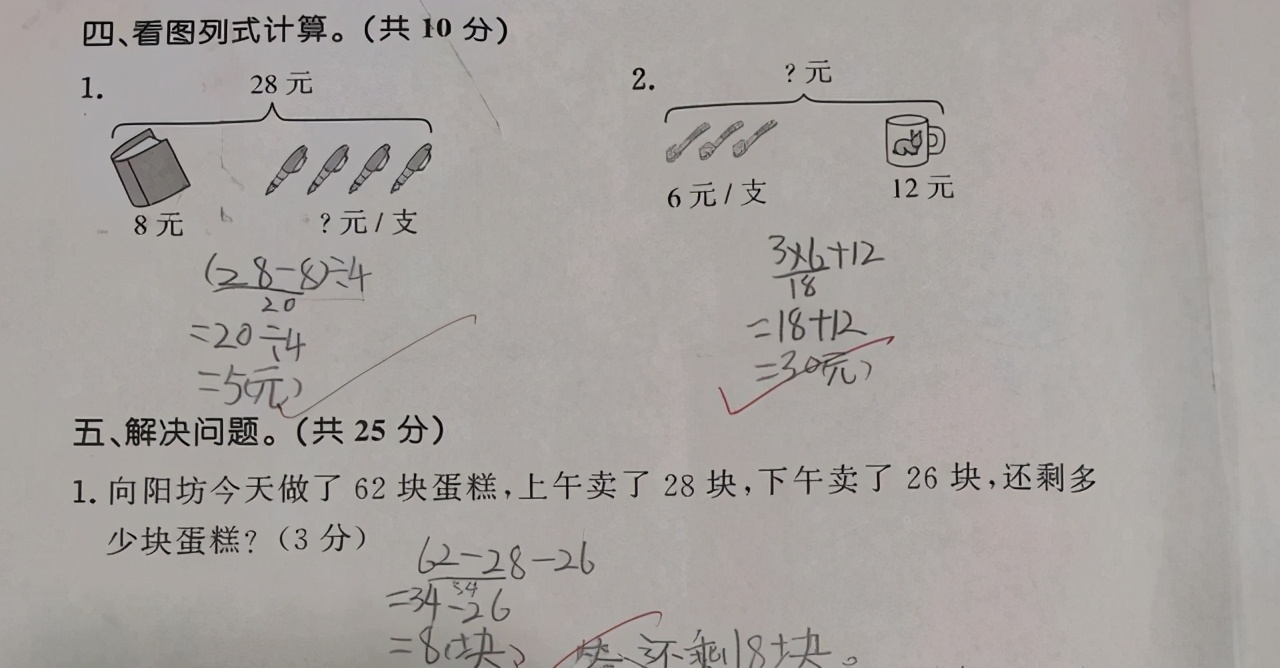 四、看图列式计算。(共 10 分)
1.
28 元
8 元
? 元 / 支
(28-8)÷4
20
=20÷4
=5(元)
2.
? 元
6 元 / 支
12 元
3×6+12
18
=18+12
=30(元)
五、解决问题。(共 25 分)
1. 向阳坊今天做了 62 块蛋糕,上午卖了 28 块,下午卖了 26 块,还剩多
少块蛋糕?(3 分)
62-28-26
34
=34-26
=8(块) 答:还剩18块。